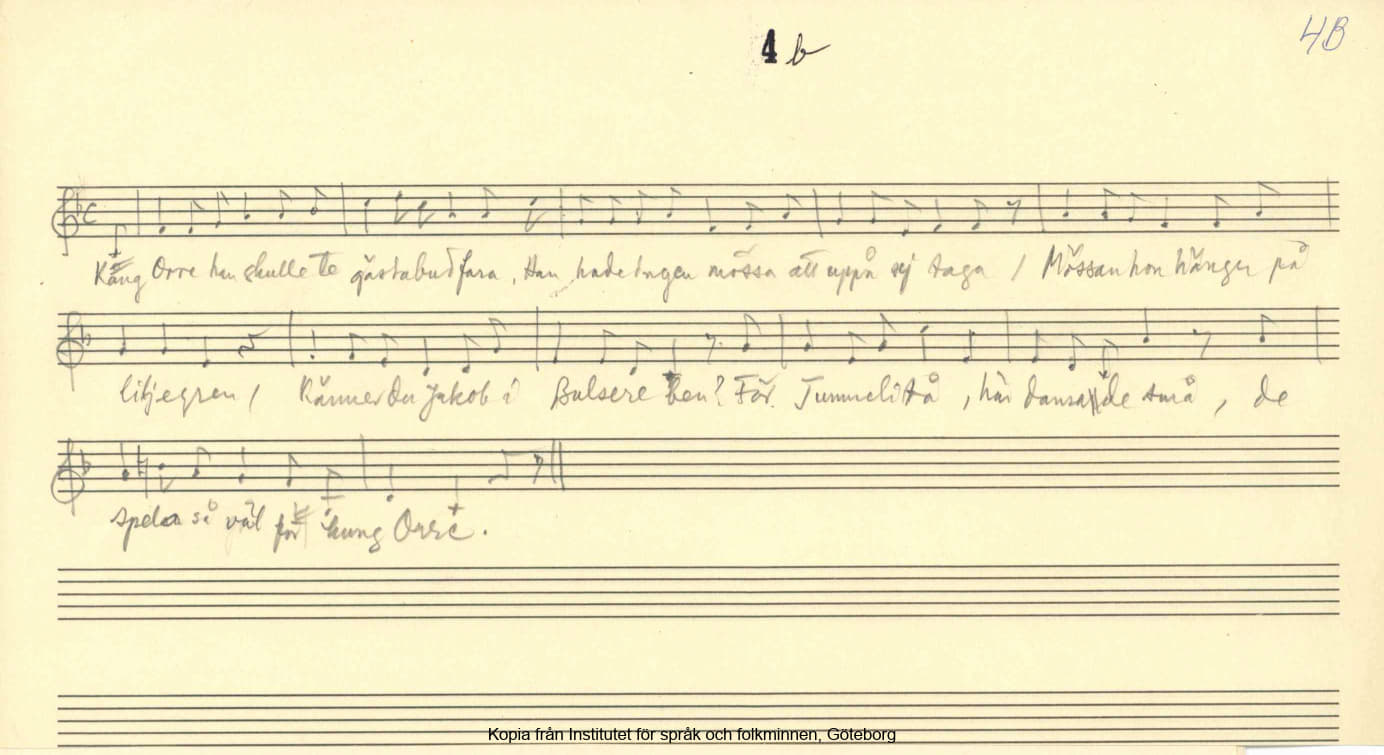 4 b
4B
Kung Orre han skulle te gästabud fara, Han hade ingen mössa att uppå sej taga / Mössan hon hänger på
liljegren / Känner du Jakob i Bulsere ben? För Tummelitå, här dansa de små, de
spela så väl för kung Orre.
Kopia från Institutet för språk och folkminnen, Göteborg